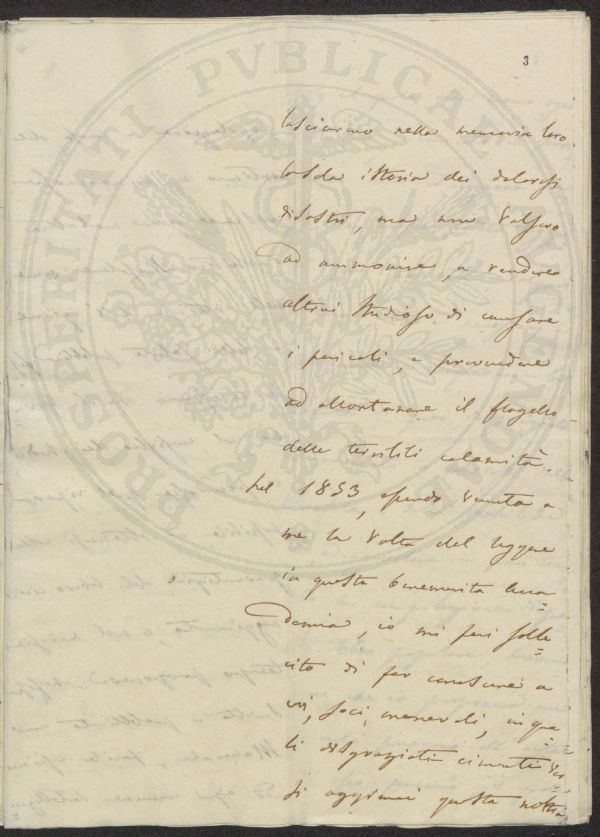 3
lasciarono nella memoria loro
la sola istoria dei dolorosi
disastri, ma non valsero
ad ammonire, a rendere
altrui studioso di cansare
i pericoli, e provvedere
ad allontanare il flagello
delle terribili calamità.
Nel 1853, essendo venuta a
me la volta del leggere
in questa benemerita Acca=
demia, io mi feci solle=
cito di far conoscere a
voi, soci onorevoli, in qua=
li disgraziati cimenti
si aggiri questa nostra
PROSPERITATI PVBLICAE